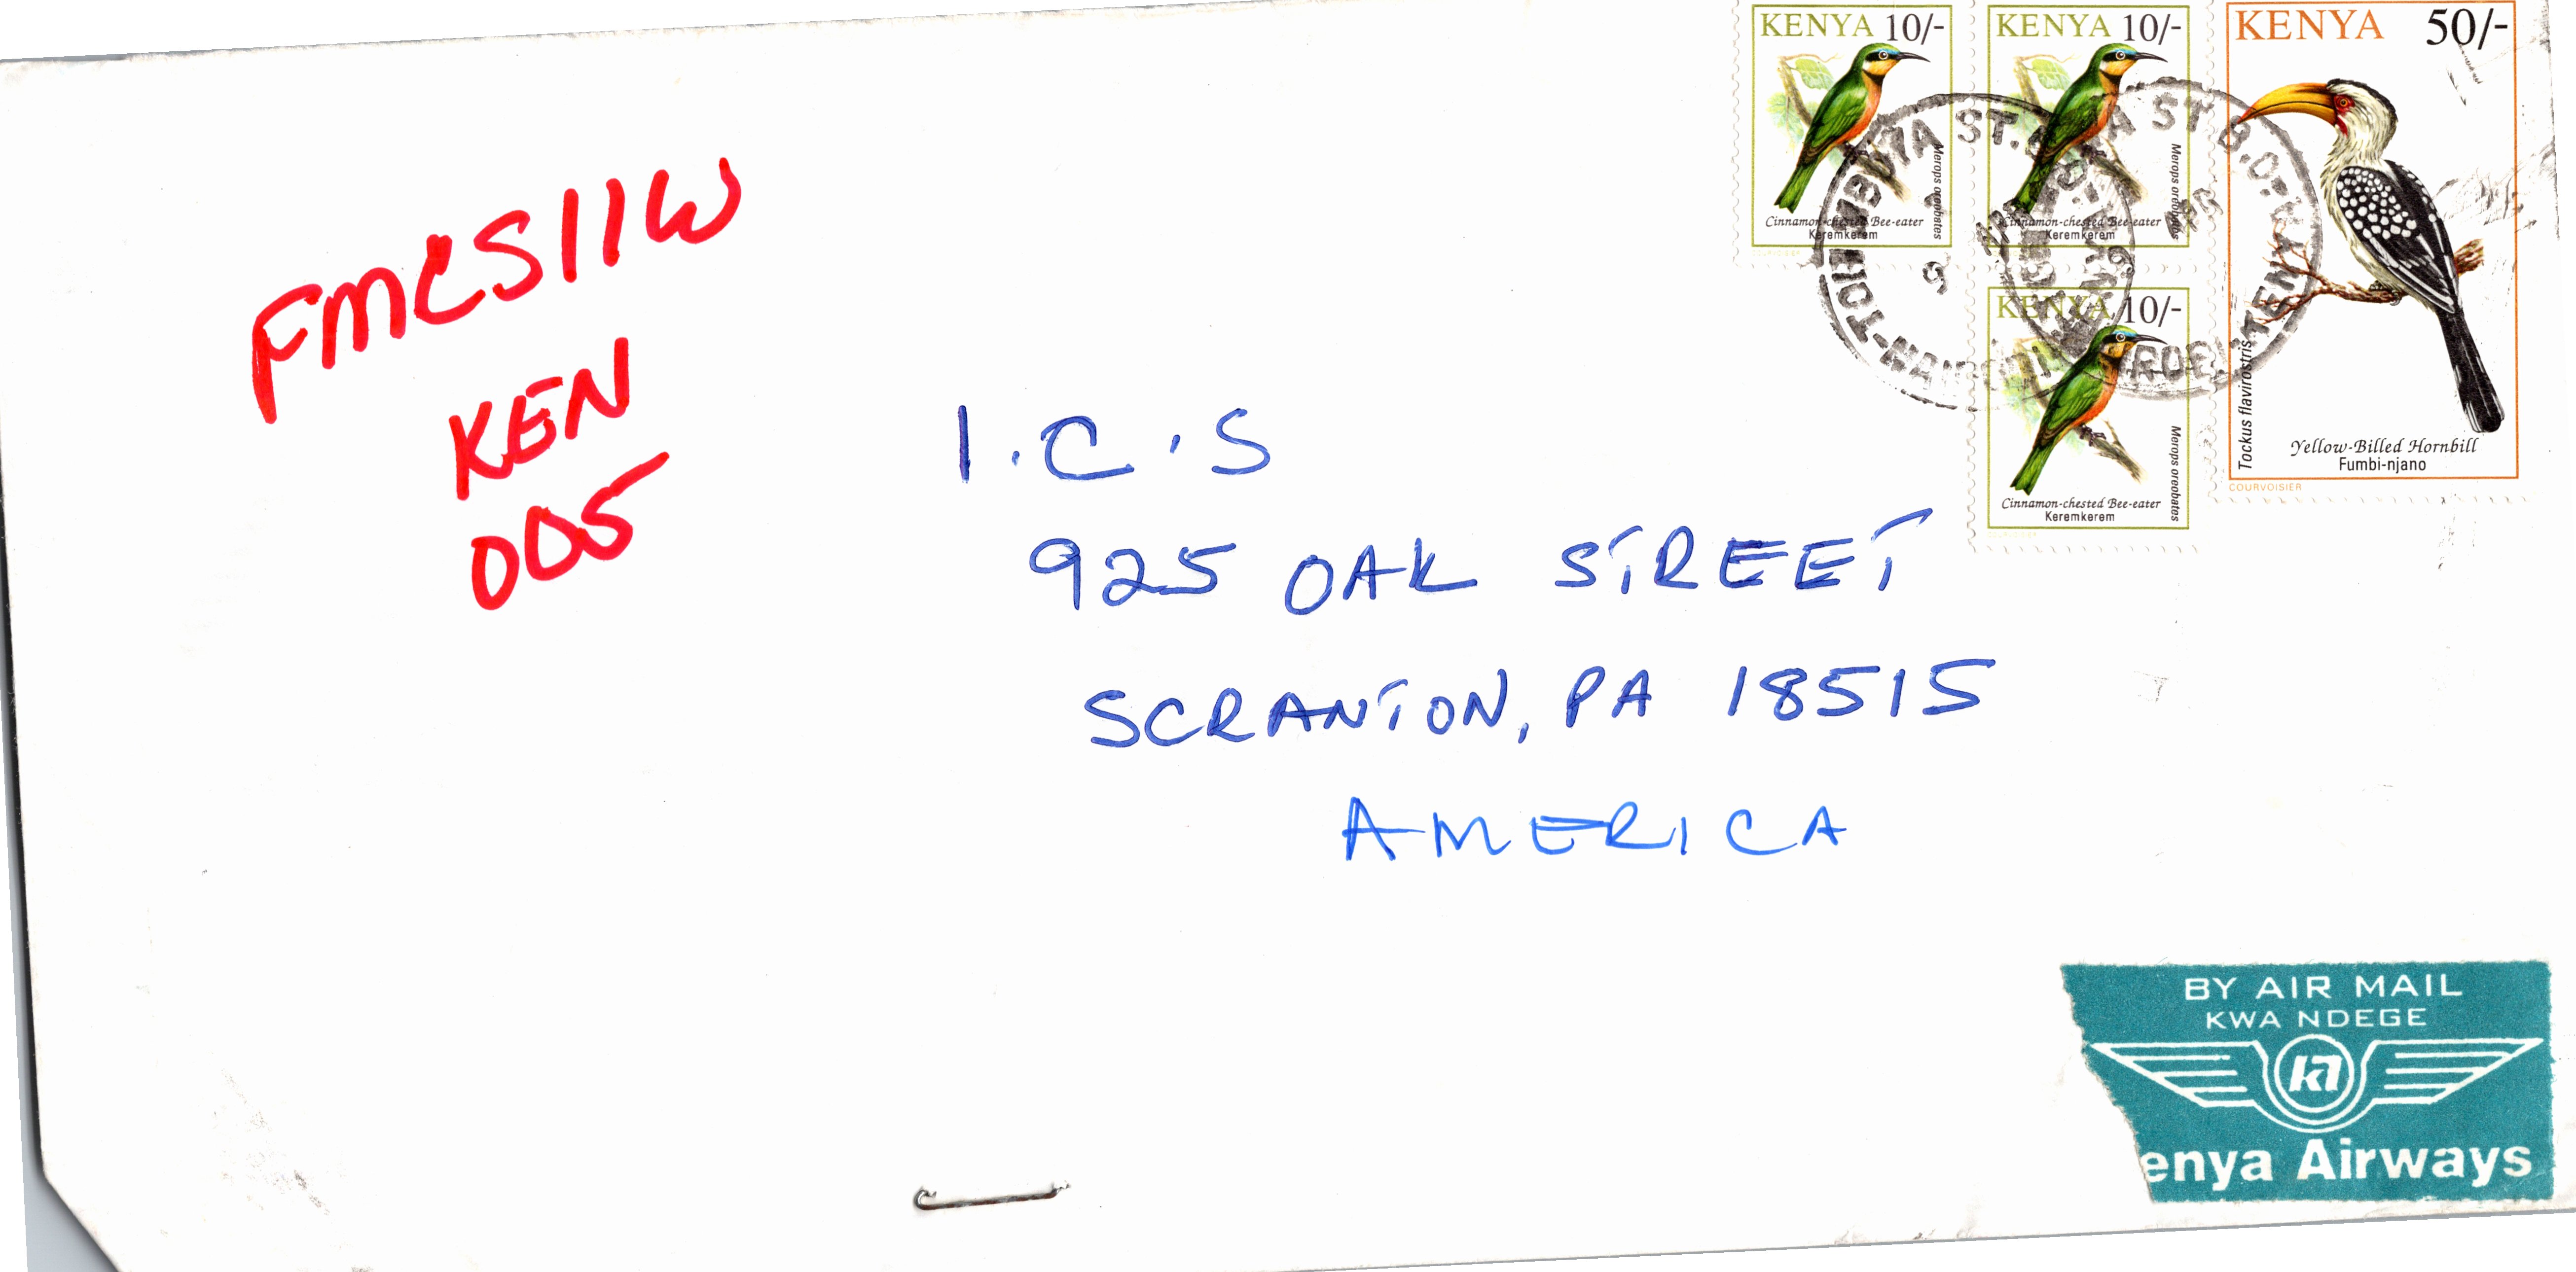 KENYA 10/-
Merops oreobates
Cinnamon-chested Bee-eater
Keremkerem
COURVOISIER
KENYA 10/-
Merops oreobates
Cinnamon-chested Bee-eater
Keremkerem
KENYA 50/-
Tockus flavirostris
Yellow-Billed Hornbill
Fumbi-njano
COURVOISIER
KENYA 10/-
Merops oreobates
Cinnamon-chested Bee-eater
Keremkerem
FMCS11W
KEN
005
I.C.S
925 OAK STREET
SCRANTON, PA 18515
AMERICA
BY AIR MAIL
KWA NDEGE
enya Airways